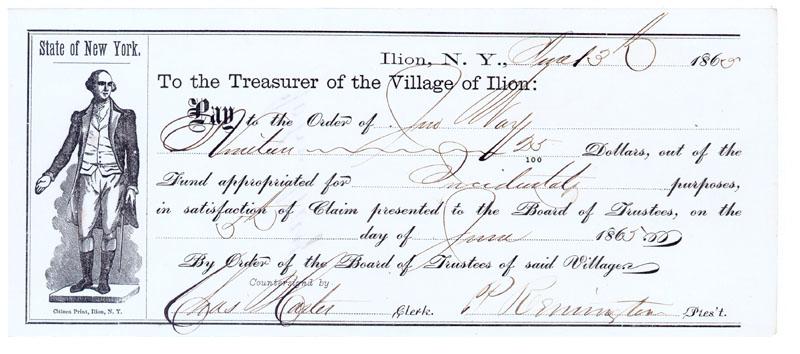 State of New York.
Ilion, N. Y., June 13th 1865
To the Treasurer of the Village of Ilion:
Pay to the Order of Jno Way
Nineteen & 25/100 Dollars, out of the
Fund appropriated for Incidental purposes,
in satisfaction of Claim presented to the Board of Trustees, on the
day of June 1865
By Order of the Board of Trustees of said Village.
Countersign'd by
Chas Clerk. P Remington Pres't.
Citizen Print, Ilion, N. Y.